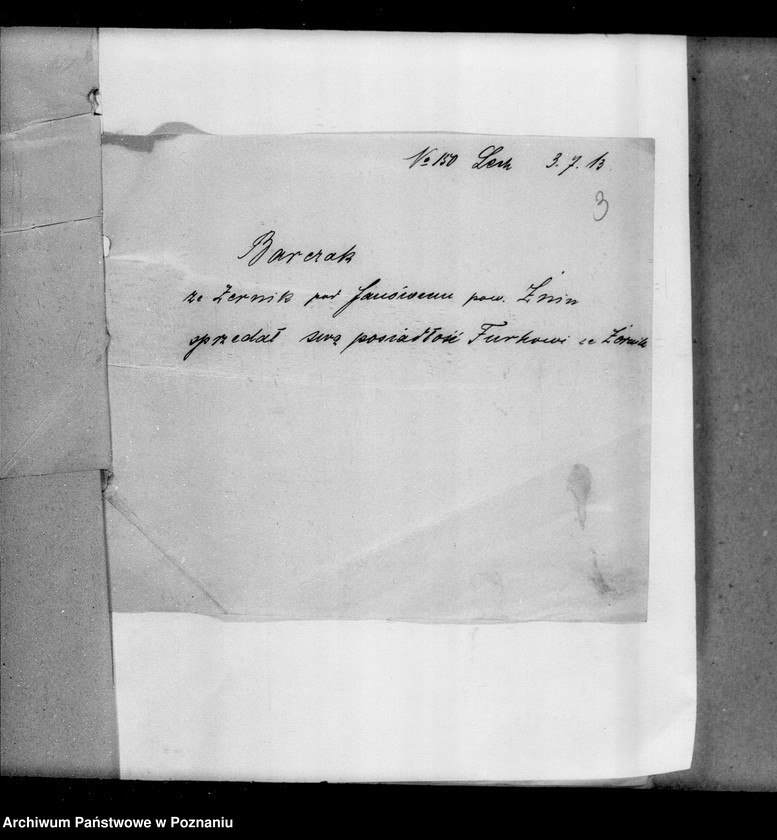 No 150 Lech 3.7.13
3
Barczak
ze Żernik pod Janówcem pow. Żnin
sprzedał swą posiadłość Turkowi ze Żernik
Archiwum Państwowe w Poznaniu